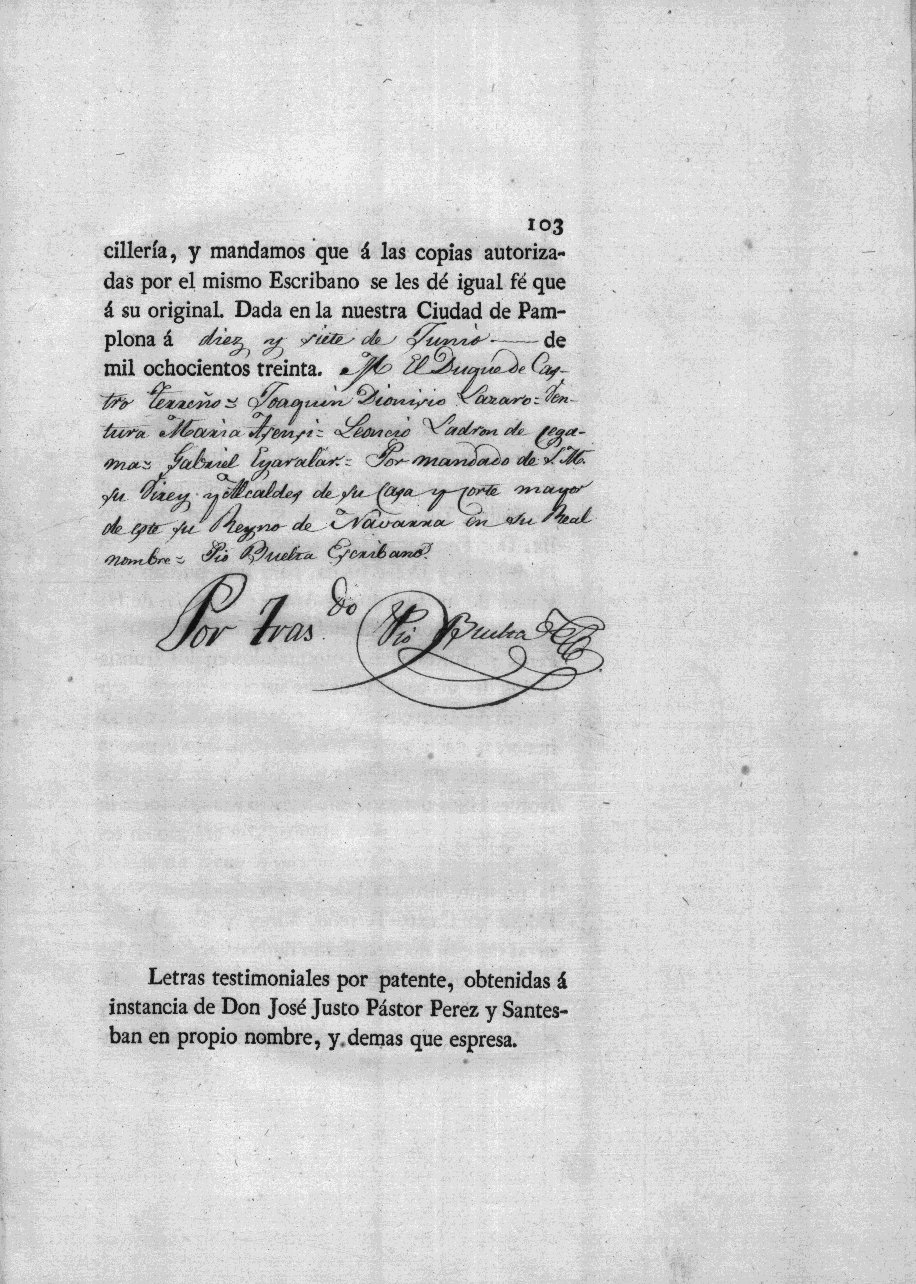 103
cillería, y mandamos que á las copias autoriza-
das por el mismo Escribano se les dé igual fé que
á su original. Dada en la nuestra Ciudad de Pam-
plona á diez y siete de Junio de
mil ochocientos treinta. El Duque de Cas-
tro terreño = Joaquin Dionisio Lazaro = Ven-
tura Maria Asensi = Leoncio Ladron de Cega-
ma = Gabriel Egaralar = Por mandado de S. M.
su Virey y Alcaldes de su Casa y Corte mayor
de este su Reyno de Navarra en su Real
nombre = Pio Buelta Escribano.
Por Tras.do Pio Buelta
Letras testimoniales por patente, obtenidas á
instancia de Don José Justo Pástor Perez y Santes-
ban en propio nombre, y demas que espresa.